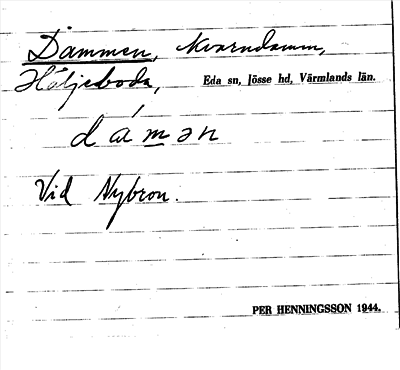 Dammen, kvarndamm,
Häljeboda, Eda sn, Jösse hd, Värmlands län.
dámən
Vid Nybron.
PER HENNINGSSON 1944.